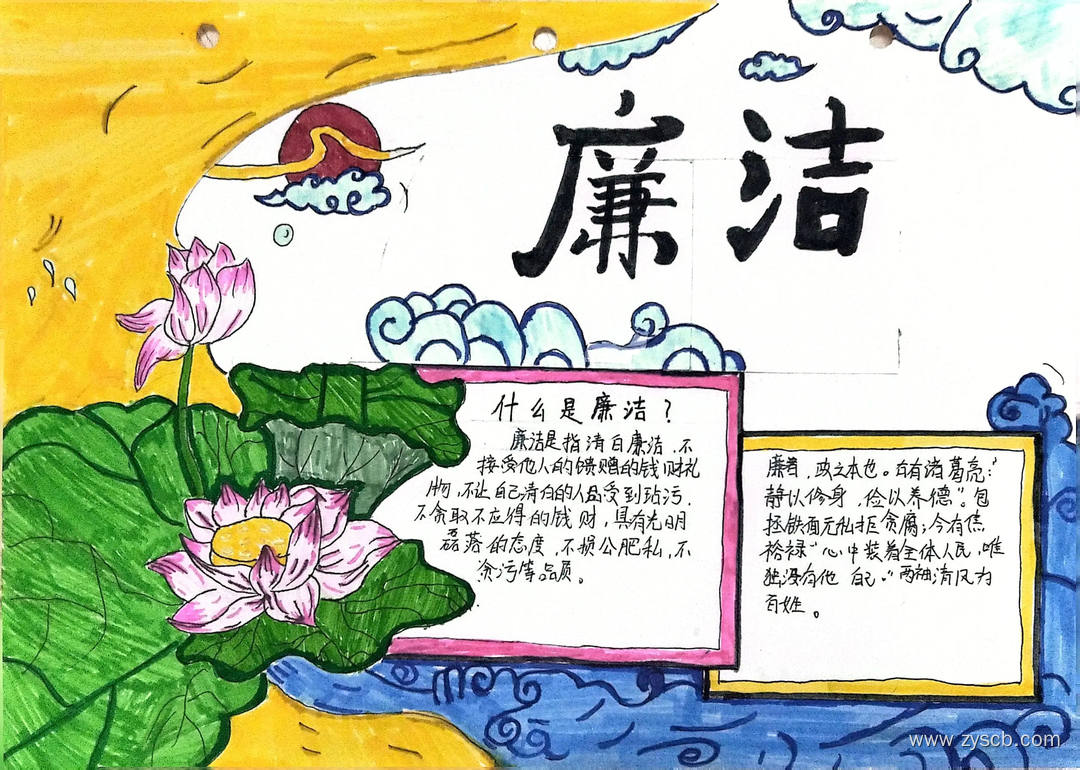 廉洁
什么是廉洁？
廉洁是指清白廉洁，不
接受他人的馈赠的钱财礼
物，不让自己清白的人品受到玷污。
不贪取不应得的钱财，具有光明
磊落的态度，不损公肥私，不
贪污等品质。
廉者，政之本也。古有诸葛亮：“
静以修身，俭以养德”。包
拯铁面无私拒贪腐；今有焦
裕禄“心中装着全体人民，唯
独没有他 自己。”两袖清风为
百姓。
www.zyscb.com